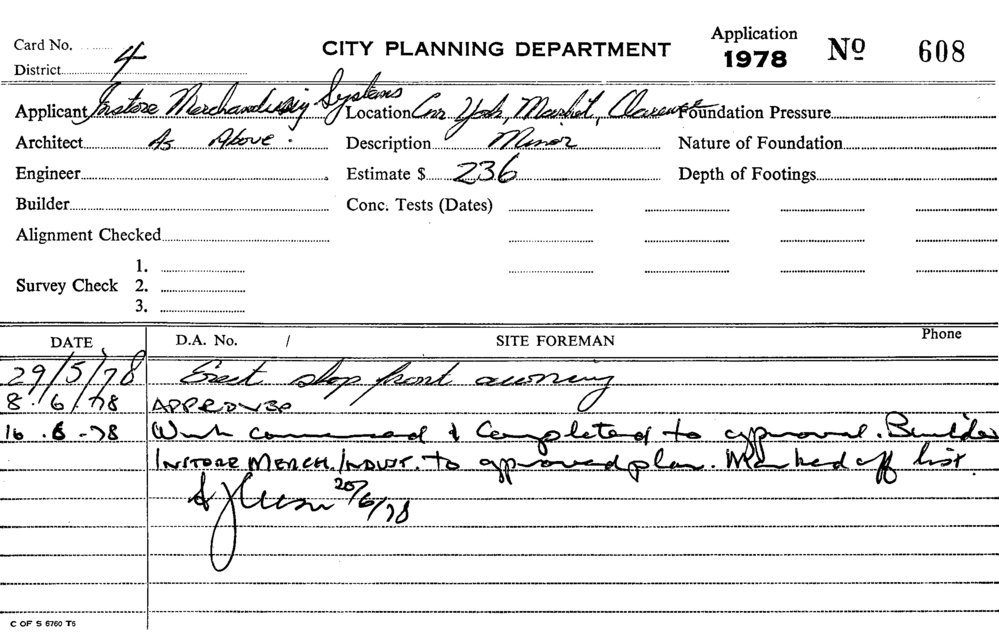 Card No. CITY PLANNING DEPARTMENT Application 1978 Nº 608
District 4
Applicant Instore Merchandising Systems Location Cnr York, Market, Clarence Foundation Pressure
Architect As Above. Description Minor Nature of Foundation
Engineer Estimate $ 236 Depth of Footings
Builder Conc. Tests (Dates)
Alignment Checked
1.
Survey Check 2.
3.
DATE D.A. No. / SITE FOREMAN Phone
29/5/78 Erect shop front awning
8.6.78 APPROVED
16.6.78 Work commenced & Completed to approval. Builder
INSTORE MERCH. INDUST. to approved plan. Marked off list.
20/6/78
C OF S 6760 T5